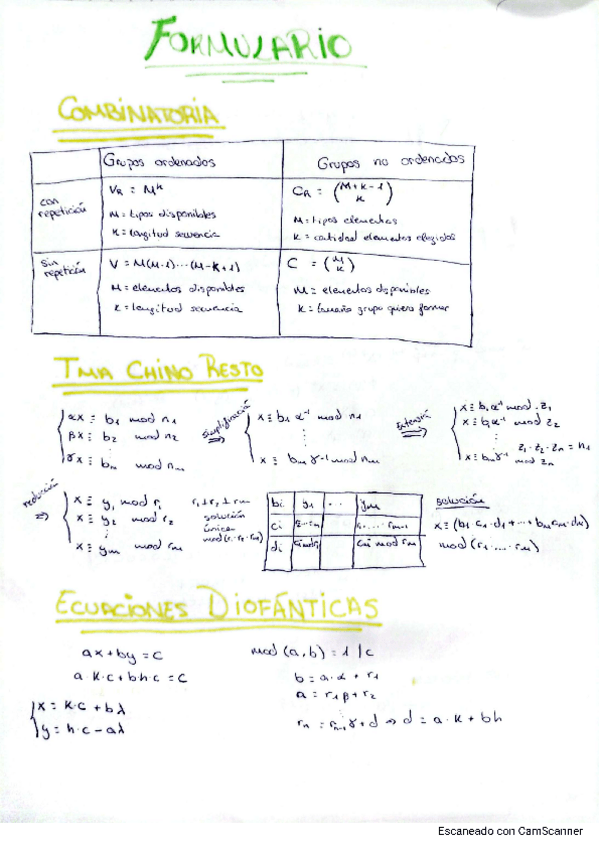 FORMULARIO
COMBINATORIA
Grupos ordenados
Grupos no ordenados
con repetición
V_R = M^k
M = tipos disponibles
K = longitud secuencia
C_R = (M+k-1 / k)
M = tipos elementos
K = cantidad elementos elegidos
sin repetición
V = M(M-1)...(M-K+1)
M = elementos disponibles
K = longitud secuencia
C = (M / k)
M = elementos disponibles
K = tamaño grupo quiero formar
TMA CHINO RESTO
αx ≡ b1 mod n1
βx ≡ b2 mod n2
γx ≡ bm mod nm
simplificación ⇒
x ≡ b1 α^-1 mod n1
⋮
x ≡ bm γ^-1 mod nm
⇒
x ≡ b1 α^-1 mod z1
x ≡ b1 α^-1 mod z2
⋮
x ≡ bm γ^-1 mod zn
z1·z2·zn = n1
reducción ⇒
x ≡ y1 mod r1
x ≡ y2 mod r2
⋮
x ≡ ym mod rm
r1 ⊥ r2 ⊥ rm
solución única
mod (r1·r2·rm)
bi y1 ... ym
ci
di ci mod ri cm mod rm
solución
x ≡ (b1·c1·d1+...+bm·cm·dm)
mod (r1·...·rm)
ECUACIONES DIOFÁNTICAS
ax+by = c
a·k·c+b·h·c = c
x = k·c + bλ
y = h·c - aλ
mcd (a,b) = 1 | c
b = a·α + r1
a = r1β + r2
rn = rn-1γ + d ⇒ d = a·k + bh
Escaneado con CamScanner